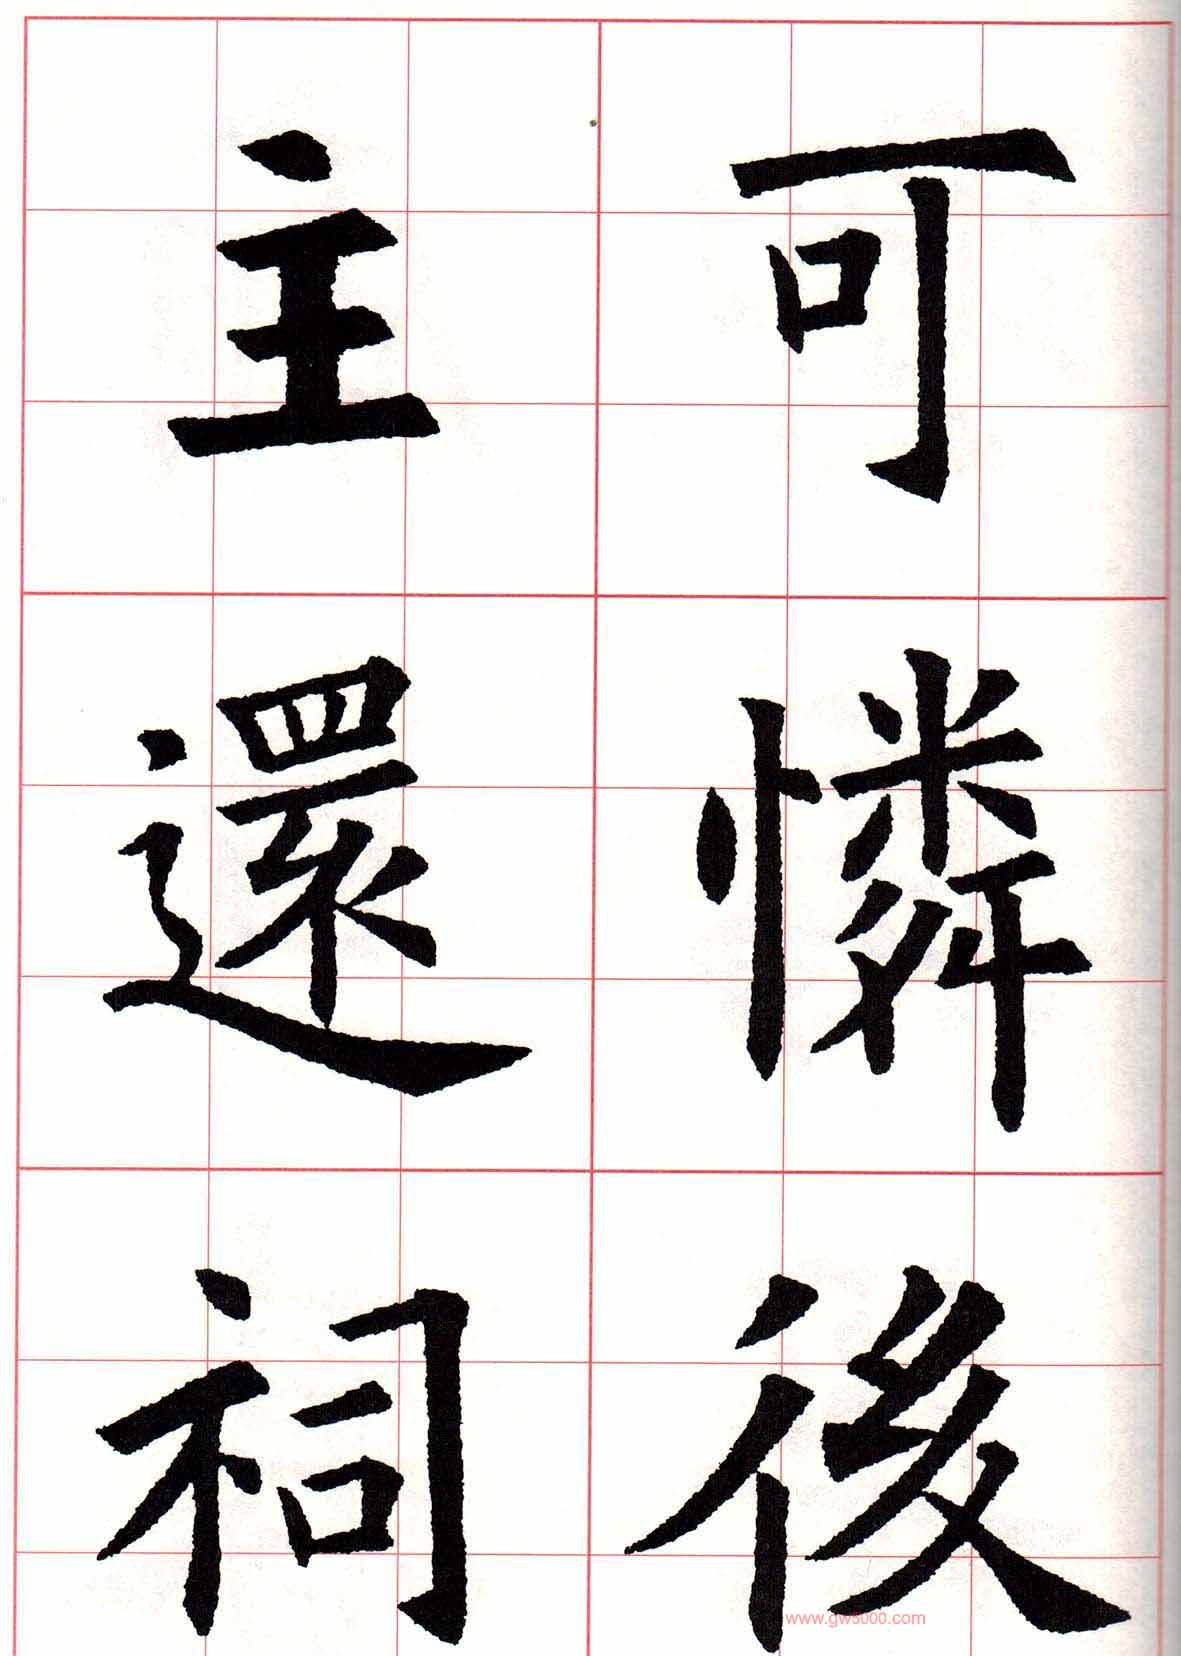 可憐後
主還祠
www.gw5000.com